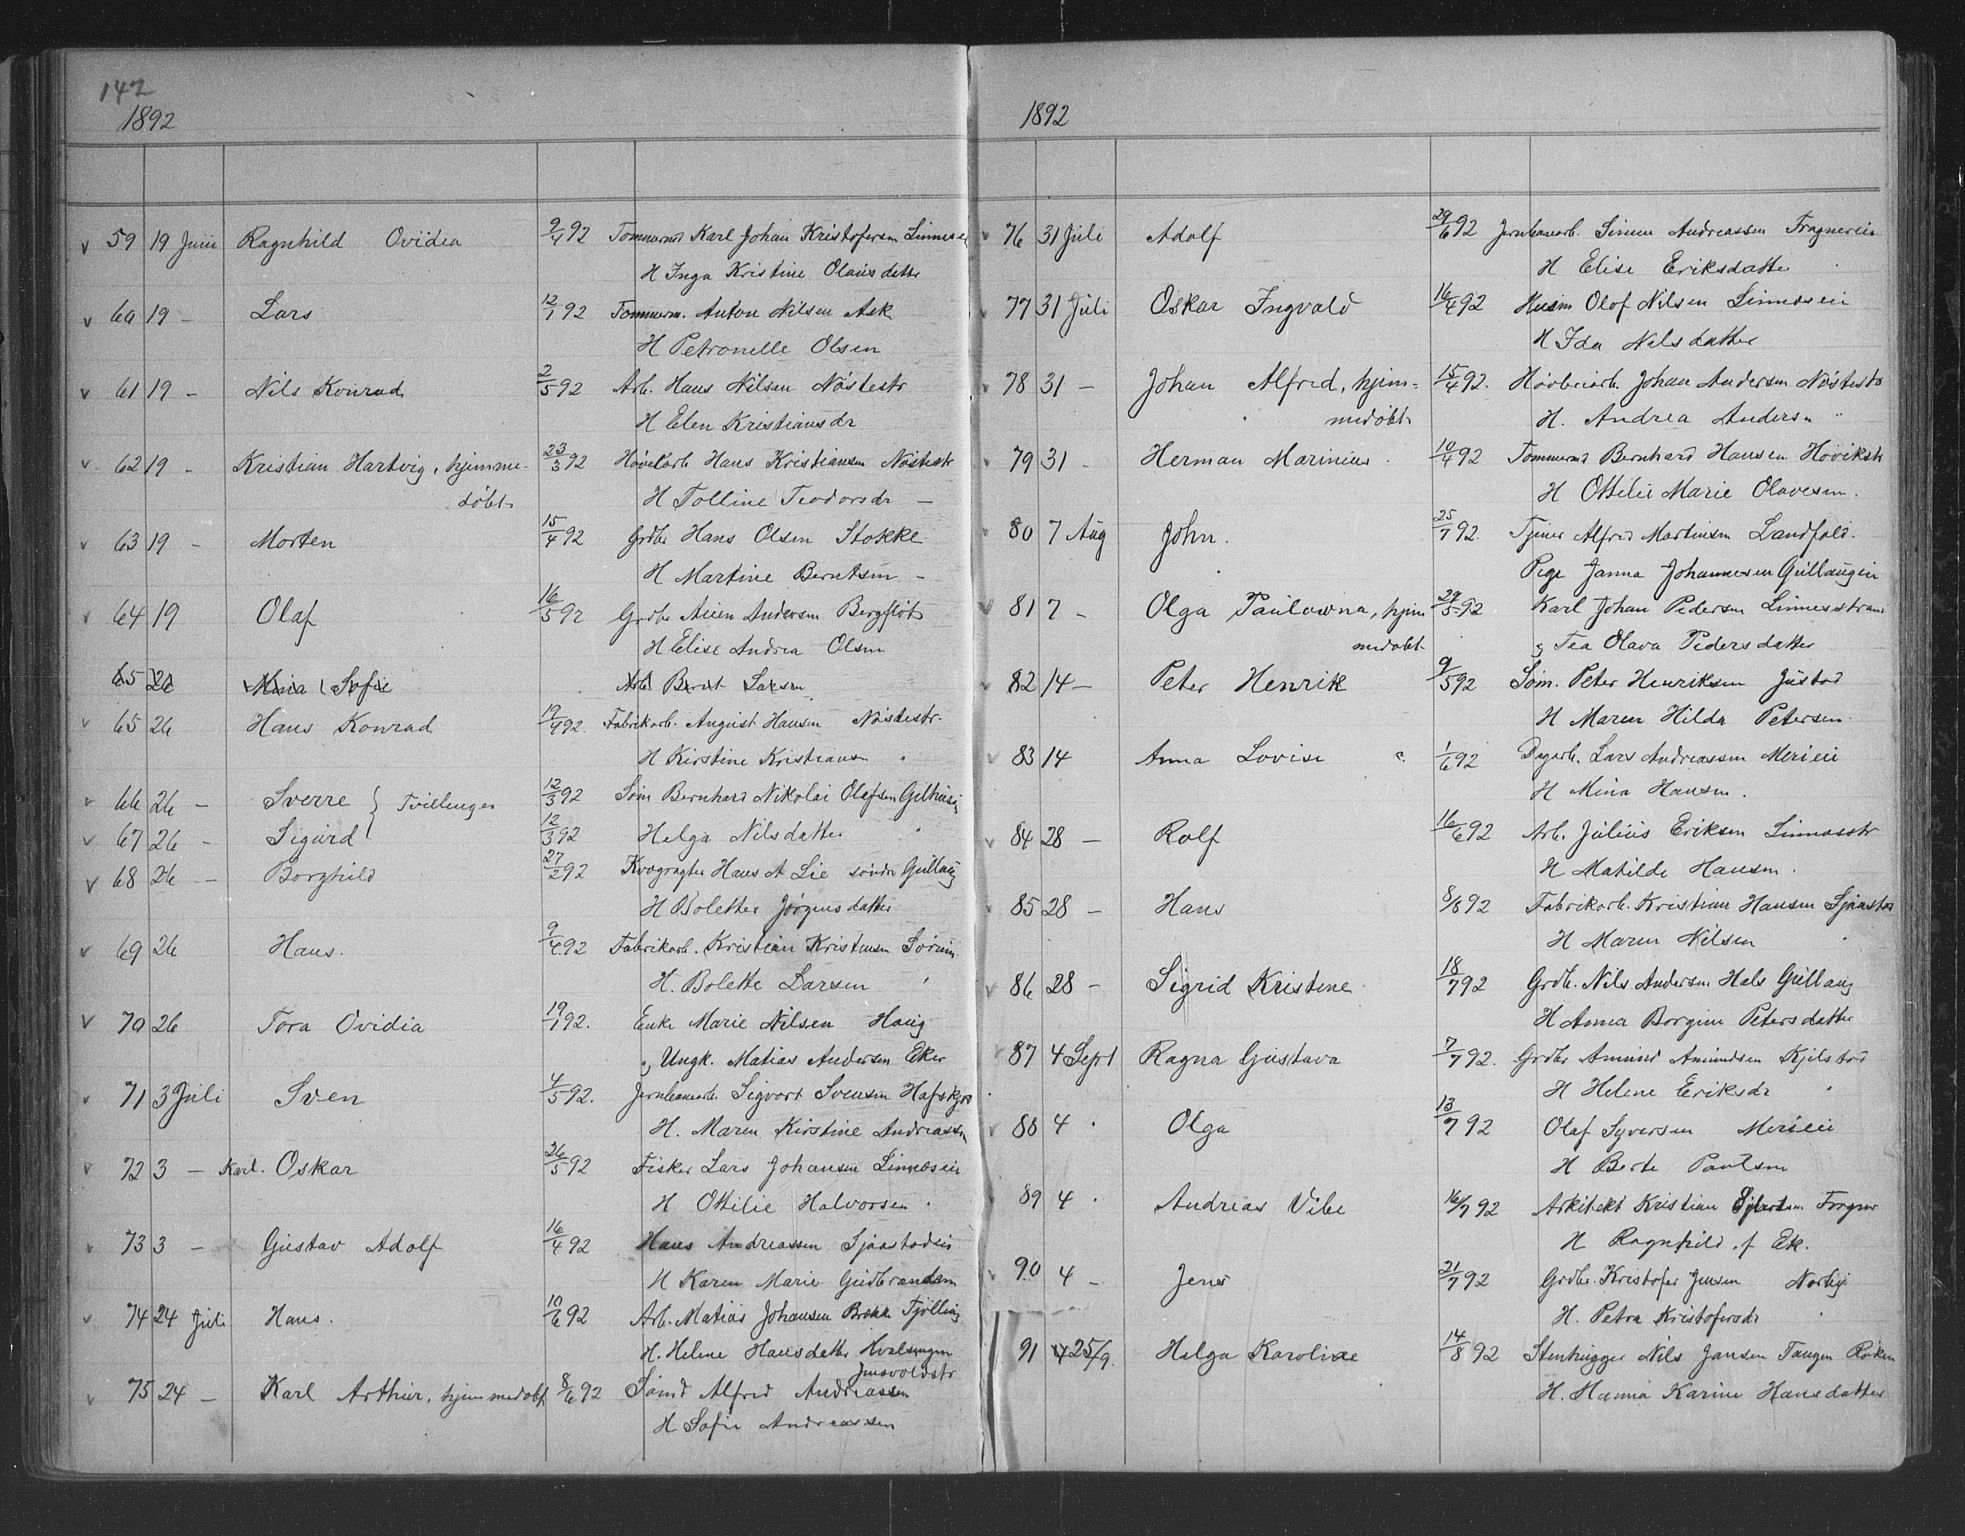 147
1892
59 19 Juni Ragnhild Ovidia 9/4 92 Tømmermd Karl Johan Kristofersen Linnes
H Inga Kristine Olausdatter
60 19 - Lars 12/1 92 Tømmerm. Anton Nilsen Ask
H Petronelle Olsen
61 19 - Nils Konrad 2/5 92 Arb. Hans Nilsen Nöstestr
H Elen Kristiansdr
62 19 - Kristian Hartvig, hjemme- 23/3 92 Høvelarb Hans Kristiansen Nöstestr
döbt H Tolline Teodorsdr -
63 19 - Morten 15/4 92 Grdbr Hans Olsen Stokke
H Martine Berntsen -
64 19 Olaf 16/5 92 Grdbr Andersen Bergflöt
H Elise Andrea Olsen
65 26 Mina Sofie Arb. Bernt Larsen
65 26 Hans Konrad 19/4 92. Fabrikarb. August Hansen Nöstestr.
H Kirstine Kristiansen "
66 26 - Sverre } Tvillinger 12/3 92 Söm Bernhard Nikolai Olafsen Gilhus
67 26 - Sigurd 12/3 92 Helga Nilsdatter "
68 26 - Borghild 27/2 92 Hans A Lie söndre Gullaug
H Bolette Jörgensdatter
69 26 Hans. 9/4 92 Fabrikarb. Kristian Kristensen
H. Bolette Larsen "
70 26 Tora Ovidia 19/1 92. Enke Marie Nilsen Haug
og Ungk. Matias Andersen Eker
71 3 Juli Sven 4/5 92. Jernbanearb Sigvart Svensen
H. Maren Kirstine Andreassen
72 3 - Karl. Oskar 26/5 92 Fisker Lars Johansen Linneseie
H Ottilie Halvorsen "
73 3 - Gustav Adolf 16/4 92 Hans Andreassen Sjaastadeie
H Karen Marie Gudbrandsen
74 24 Juli Hans. 10/6 92 Arb. Matias Johansen Tjölling
H. Helene Hansdatter
75 24 - Karl Arthur, hjemmedöbt 8/6 92 Sömd Alfred Andreassen
H Sofie Andreassen
1892
76 31 Juli Adolf 29/6 92 Jernbanearb. Simen Andreassen Fragnereie
H Elise Eriksdatter
77 31 Juli Oskar Ingvald 16/4 92 Husm Olof Nilsen Linneseie
H Ida Nilsdatter
78 31 - Johan Alfred, hjem- 15/4 92. Høvleriarb. Johan Andersen Nöstestr
medöbt H. Andrea Andersn "
79 31 - Herman Marinius 10/4 92 Tømmermd Bernhard Hansen
H Ottilie Marie Olavesen.
80 7 Aug John. 25/7 92. Tjener Alfred Martinsen Landfald.
Pige Janna Johannesen Gullaugen
81 7 - Olga Paulowna, hjem 29/5 92 Karl Johan Pedersen Linnesstrand
medöbt og Tea Olava Pedersdatter
82 14 - Peter Henrik 9/5 92 Söm. Peter Henriksen Justad
H Maren Hilda Petersen
83 14 Anna Lovise 1/6 92 Dagarb. Lars Andreassen Merieie
H Mina Hansen.
84 28 - Rolf 16/6 92 Arb. Julius Eriksen Linnesstr
H Matilde Hansen.
85 28 - Hans 8/6 92 Fabrikarb. Kristian Hansen Sjaastad
H Maren Nilsen "
86 28 - Sigrid Kristine 18/7 92 Grdb. Nils Andersen Hals Gullaug
H Anna Borgine Petersdatter
87 4 Sept Ragna Gustava 7/7 92. Grdbr Amund Amundsen Kjilstad
H Helene Eriksdr "
88 4 " Olga 13/7 92 Olaf Syversen Merieie
H Berte Paulsen
89 4 " Andreas Vibe 16/7 92 Arkitekt Kristian Fragner
H Ragnhild f. Ek.
90 4 - Jens 21/7 92 Grdbr. Kristofer Jensen Norby
H. Petra Kristofersdr "
91 4 25/9. Helga Karoline 14/8 92 Stenhugger Nils Jansen Tangen Röken
H. Hanna Karine Hansdatter